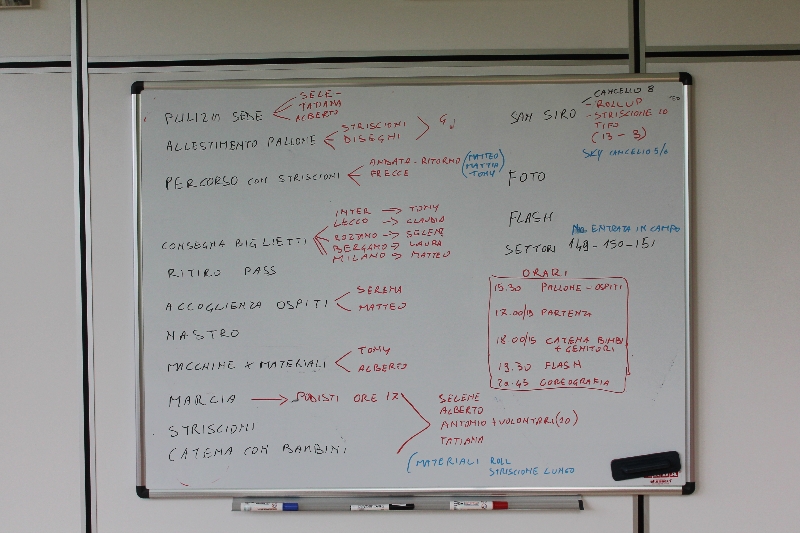 PULIZIA SEDE
SELE-
TATIANA
ALBERTO
ALLESTIMENTO PALLONE
STRISCIONI
DISEGNI
PERCORSO CON STRISCIONI
ANDATA - RITORNO
FRECCE
(MATTEO
MATTIA
TOMY)
CONSEGNA BIGLIETTI
INTER → TOMY
LECCO → CLAUDIO
ROZZANO → SELENE
BERGAMO → LAURA
MILANO → MATTEO
RITIRO PASS
ACCOGLIENZA OSPITI
SERENA
MATTEO
NASTRO
MACCHINE X MATERIALI
TOMY
ALBERTO
MARCIA → PODISTI ORE 17
STRISCIONI
CATENA CON BAMBINI
SELENE
ALBERTO
ANTONIO + VOLONTARI (10)
TATIANA
(MATERIALI ROLL
STRISCIONE LUNGO
SAN SIRO
CANCELLO 8
- ROLLUP
- STRISCIONE IO
TIFO
(13 - 3)
SKY CANCELLO 5/6
FOTO
FLASH
ENTRATA IN CAMPO
SETTORI 149 - 150 - 151
ORARI
15.30 PALLONE - OSPITI
17.00/15 PARTENZA
18.00/15 CATENA BIMBI
+ GENITORI
19.30 FLASH
20.45 COREOGRAFIA